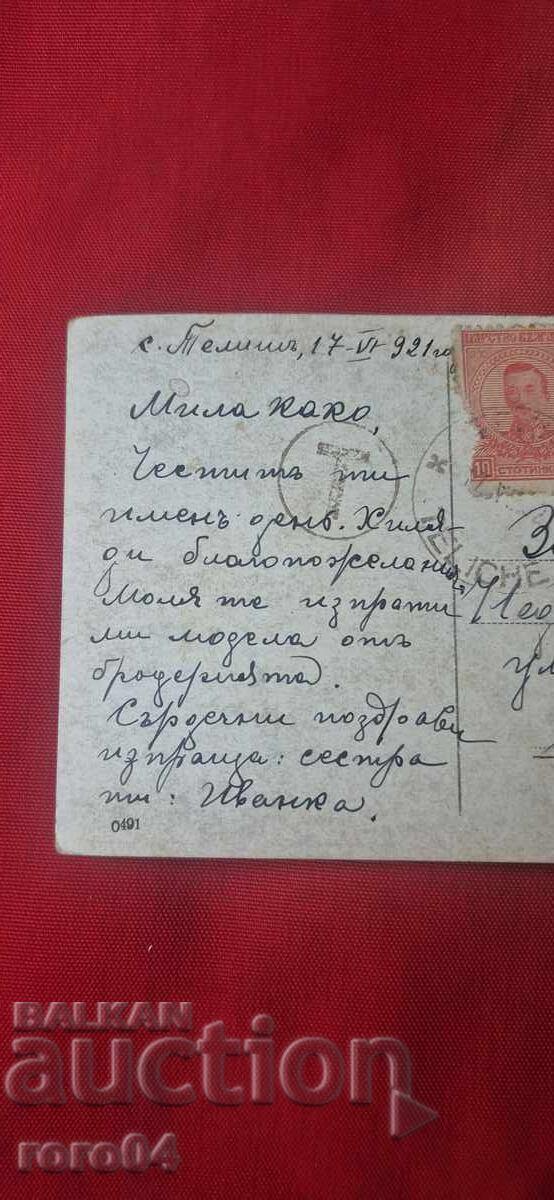 с. Телишъ, 17-VI 921 го
Мила како,
Честитъ ти
именъ день. Хиля-
ди благопожелания.
Моля те изпрати
ми модела отъ
бродерията.
Сърдечни поздрави
изпраща: сестра
ти: Иванка.
0491
ЦАРСТВО БЪЛГ
10
СТОТИНК
T
TÉLICHE
ул
BALKAN
auction
roro04